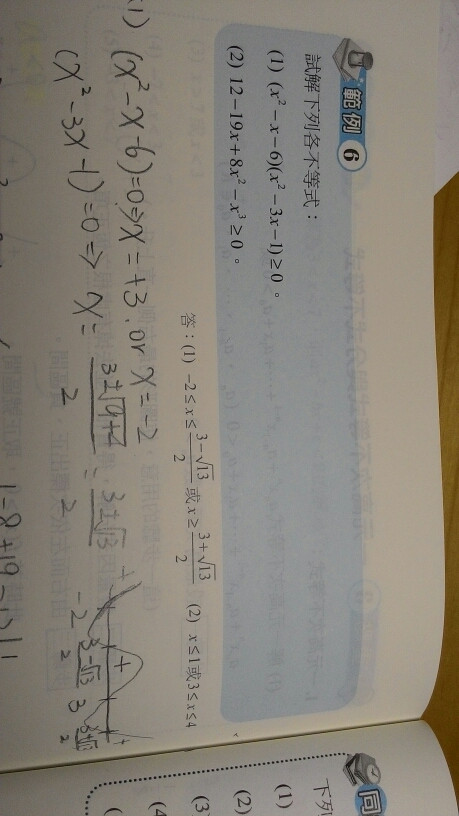 範例 6
試解下列各不等式：
(1) (x² − x − 6)(x² − 3x − 1) ≥ 0 。
(2) 12 − 19x + 8x² − x³ ≥ 0 。
答：(1) −2 ≤ x ≤ (3 − √13)/2 或 x ≥ (3 + √13)/2 (2) x ≤ 1 或 3 ≤ x ≤ 4
(1) (x² − x − 6) = 0 ⇒ x = +3, or x = −2
(x² − 3x − 1) = 0 ⇒ x = (3 ± √(9+4))/2 = (3 ± √13)/2
+ + +
−2 (3 − √13)/2 3 (3 + √13)/2
1 − 8 + 19 − 12 | 1
同
下列
(1)
(2)
(3)
(4)